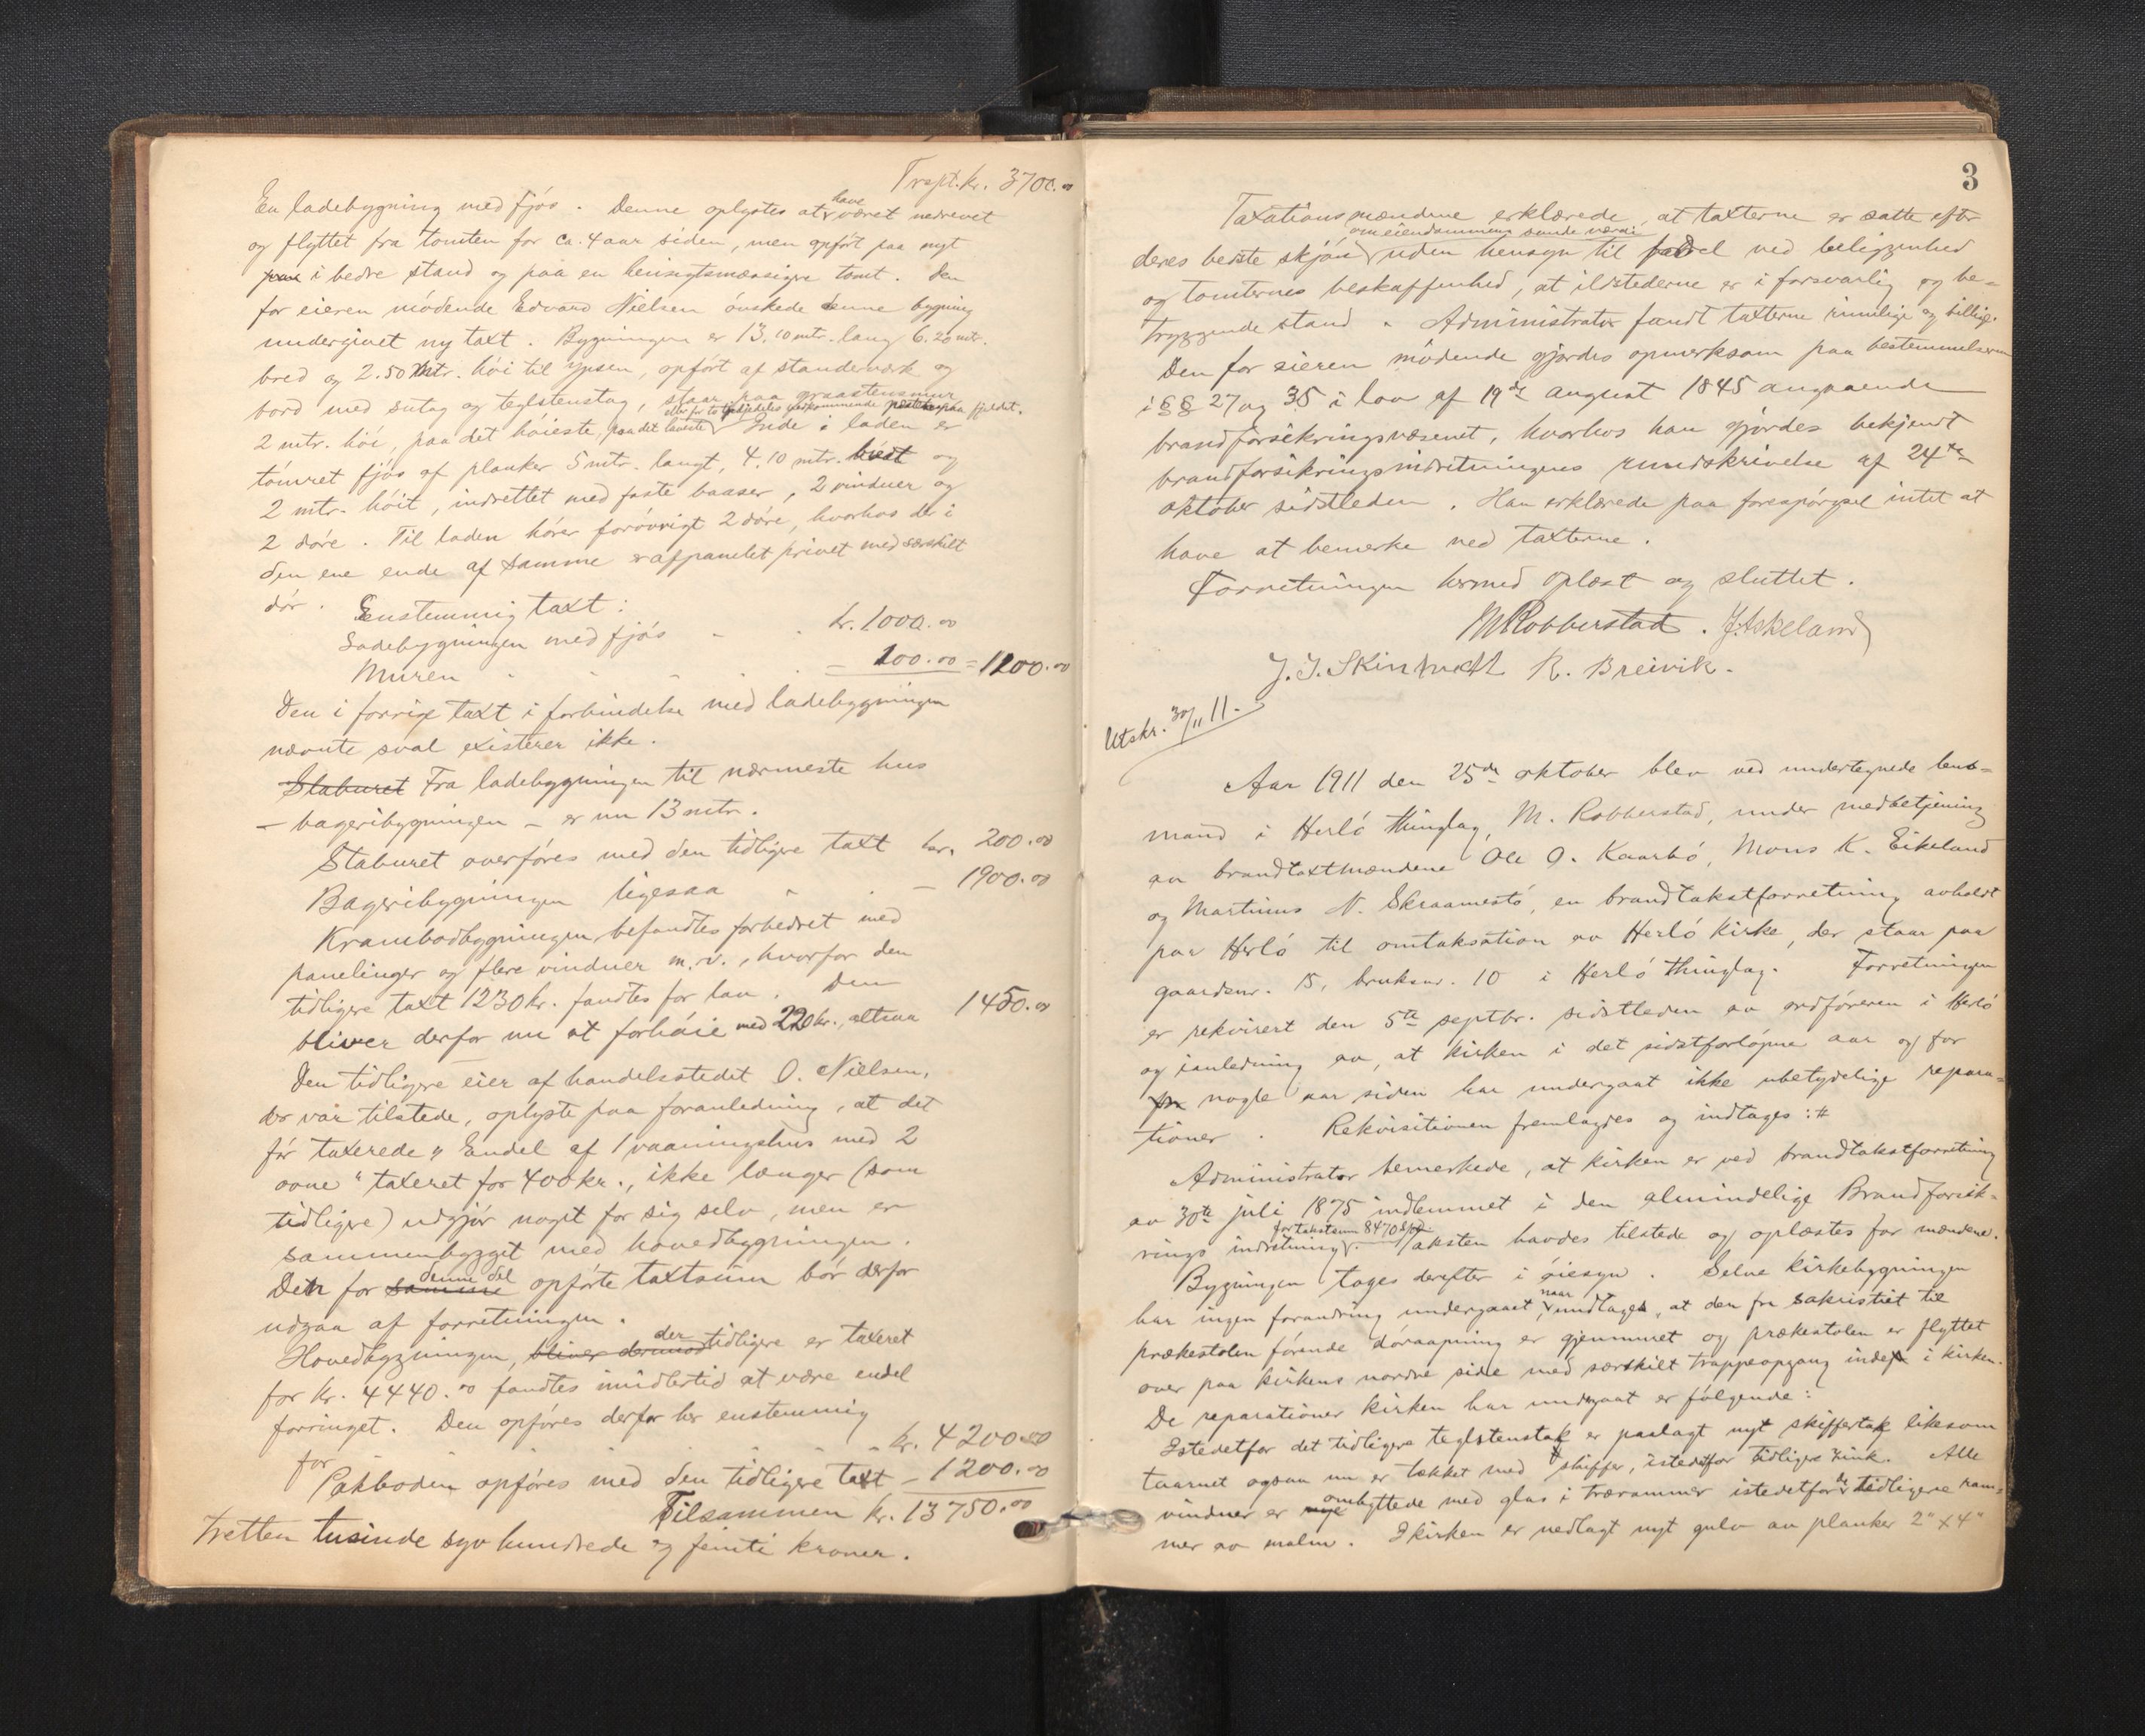 Trspt. kr. 3700.00
En ladebygning med fjós. Denne oplystes at have været nedrevet
og flyttet fra tomten for ca. 4 aar siden, men opfört paa nyt
i bedre stand og paa en hensigtsmæssigere tomt. Den
for eieren mödende Edvard Nielsen önskede denne bygning
undergivet ny taxt. Bygningen er 13.10 mtr. lang 6.20 mtr.
bred og 2.50 mtr. höi til ypsen, opfört af standerværk og
bord med sutag og teglstenstag, staar paa graastensmur
2 mtr. höi, paa det höieste, paa det laveste paa fjeldet. Inde i laden er
tömret fjös af planker 5 mtr. langt, 4.10 mtr. bredt og
2 mtr. höit, indrettet med faste baaser, 2 vinduer og
2 döre. Til laden hörer forövrigt 2 döre, hvorhos der i
den ene ende af samme er afpanelet privet med særskilt
dör. Eenstemmig taxt:
Ladebygningen med fjós - . kr. 1000.00
Muren - - - . - 200.00 = 1200.00
Den i forrige taxt i forbindelse med ladebygningen
nævnte sval existerer ikke.
Staburet Fra ladebygningen til nærmeste hus
- bageribygningen - er nu 13 mtr.
Staburet overföres med den tidligere taxt kr. 200.00
Bageribygningen ligesaa - . - 1900.00
Krambodbygningen befandtes forbedret med
panelinger og flere vinduer m.v., hvorfor den
tidligere taxt 1230 kr. fandtes for lav. Den
bliver derfor nu at forhöie med 220 kr., altsaa 1450.00
Den tidligere eier af handelsstedet O. Nielsen,
der var tilstede, oplyste paa foranledning, at det
för taxerede "Endel af 1 vaaningshus med 2
ovne" taxeret for 400 kr., ikke længer (som
tidligere) udgjör noget for sig selv, men er
sammenbygget med hovedbygningen.
Den for samme denne del opförte taxtsum bör derfor
udgaa af forretningen.
Hovedbygningen, bliver dermod der tidligere er taxeret
for kr. 4440.00 fandtes imidlertid at være endel
forringet. Den opföres derfor her enstemmig
for - - - kr. 4200.00
Pakboden opföres med den tidligere taxt - 1200.00
Tilsammen kr. 13750.00
tretten tusinde syv hundrede og femti kroner.
3
Taxationsmændene erklærede, at taxterne er satte efter
deres bedste skjön om eiendommens sande værdi uden hensyn til fordel ved beliggenhed
og tomternes beskaffenhed, at ildstederne er i forsvarlig og be-
tryggende stand. Administrator fandt taxterne rimelige og billige.
Den for eieren mödende gjordes opmerksom paa bestemmelserne
i §§ 27 og 35 i lov af 19de august 1845 angaaende
brandforsikringsvæsenet, hvorhos han gjordes bekjendt
brandforsikringsindretningens rundskrivelse af 24de
oktober sidstleden. Han erklærede paa forespörgsel intet at
have at bemerke ved taxterne.
Forretningen hermed oplæst og sluttet.
M Robberstad. J. Askeland
J. J. Skintveidt R. Breivik.
Utskr. 30/11 11.
Aar 1911 den 25de oktober blev ved undertegnede lens-
mand i Herló thinglag, M. Robberstad, under medbetjening
av brandtaxtmændene Ole O. Kaarbó, Mons K. Eikeland
og Martinus N. Skraamestó, en brandtakstforretning avholdt
paa Herló til omtaksation av Herló kirke, der staar paa
gaardsnr. 15, bruksnr. 10 i Herló thinglag. Forretningen
er rekvirert den 5te septbr. sidstleden av ordföreren i Herló
og i anledning av, at kirken i det sidstforlöpne aar og for
for nogle aar siden har undergaat ikke ubetydelige repara-
tioner. Rekvisitionen fremlagdes og indtages: #
Administrator bemerkede, at kirken er ved brandtakstforretning
av 30te juli 1875 indlemmet i den almindelige Brandforsik-
rings indretning for takstsum 8470 Spd. Taksten havdes tilstede og oplæstes for mændene.
Bygningen toges derefter i öiesyn. Selve kirkebygningen
har ingen forandring undergaaet, naar undtages, at den fra sakristiet til
prækestolen förende döraapning er gjenmuret og prækestolen er flyttet
over paa kirkens nordre side med særskilt trappeopgang inde i kirken.
De reparationer kirken har undergaat er fölgende:
Istedetfor det tidligere teglstenstak er paalagt nyt skiffertak liksom
taarnet ogsaa nu er tækket med skiffer, istedetfor tidligere zink. Alle
vinduer er nye ombyttede med glas i trærammer istedetfor de tidligere ram-
mer av malm. I kirken er nedlagt nyt gulv av planker 2" x 4"